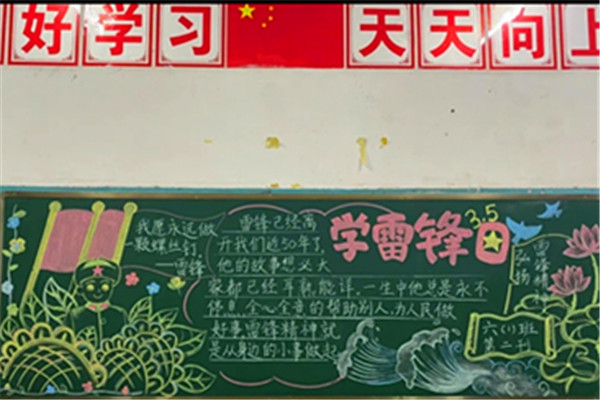 好学习 天天向上
学雷锋日
3.5
我愿永远做
一颗螺丝钉
——雷锋
雷锋已经离
开我们近50年了
他的故事想必大
家都已经耳熟能详,一生中他总是永不
停息,全心全意的帮助别人,为人民做
好事雷锋精神就
是从身边的小事做起
弘扬
雷锋精神
六(1)班
第二刊